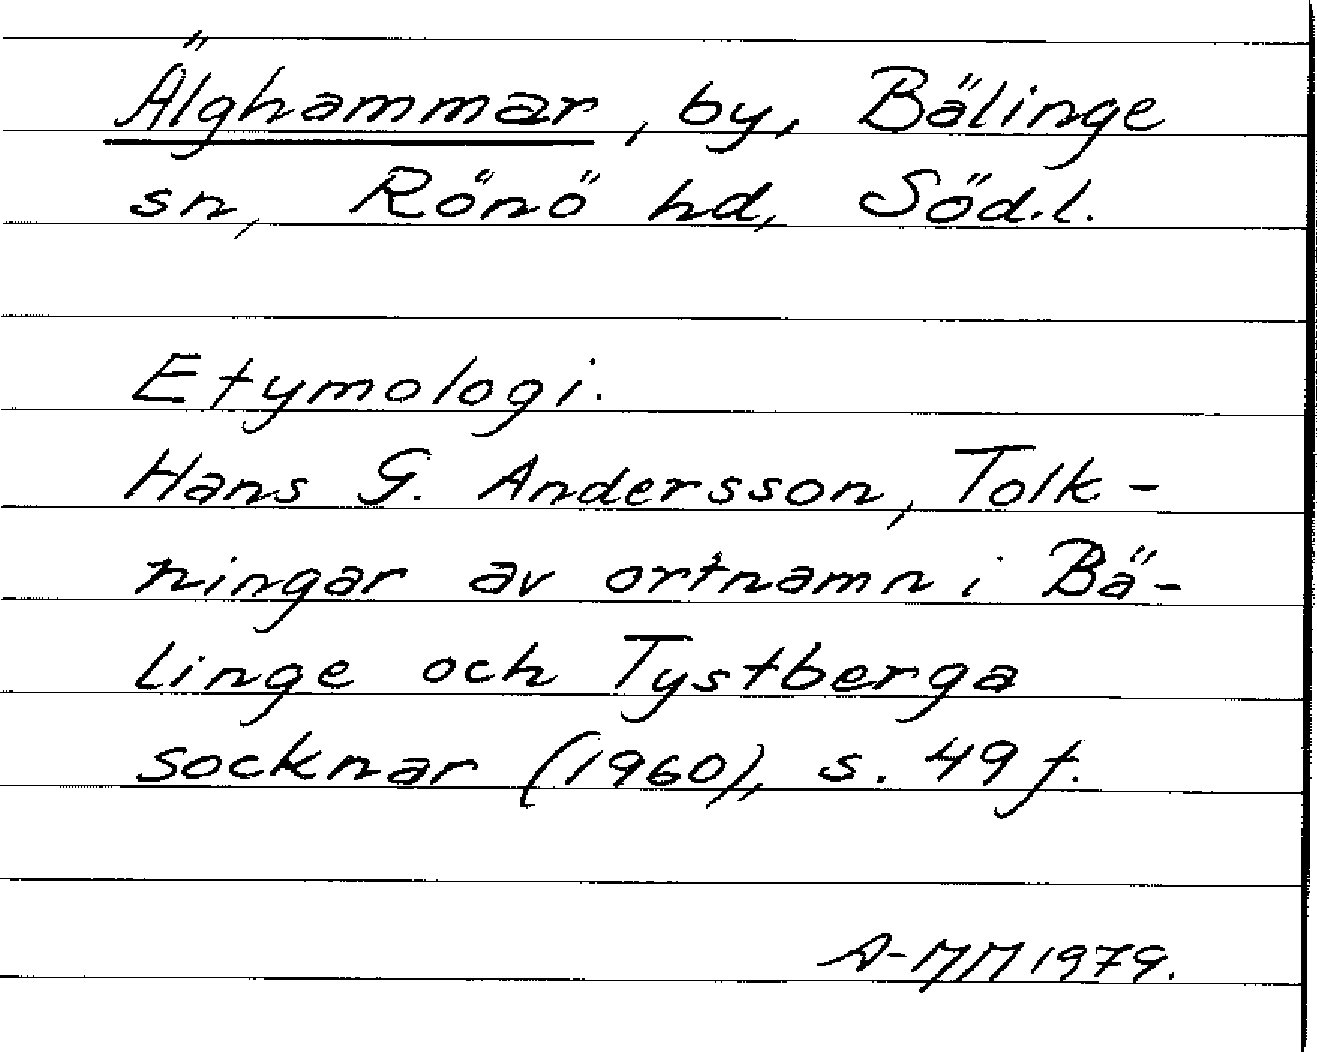 Älghammar, by, Bälinge
sn, Rönö hd, Söd.l.
Etymologi.
Hans G. Andersson, Tolk-
ningar av ortnamn i Bä-
linge och Tystberga
socknar (1960), s. 49 f.
A-MM 1979.